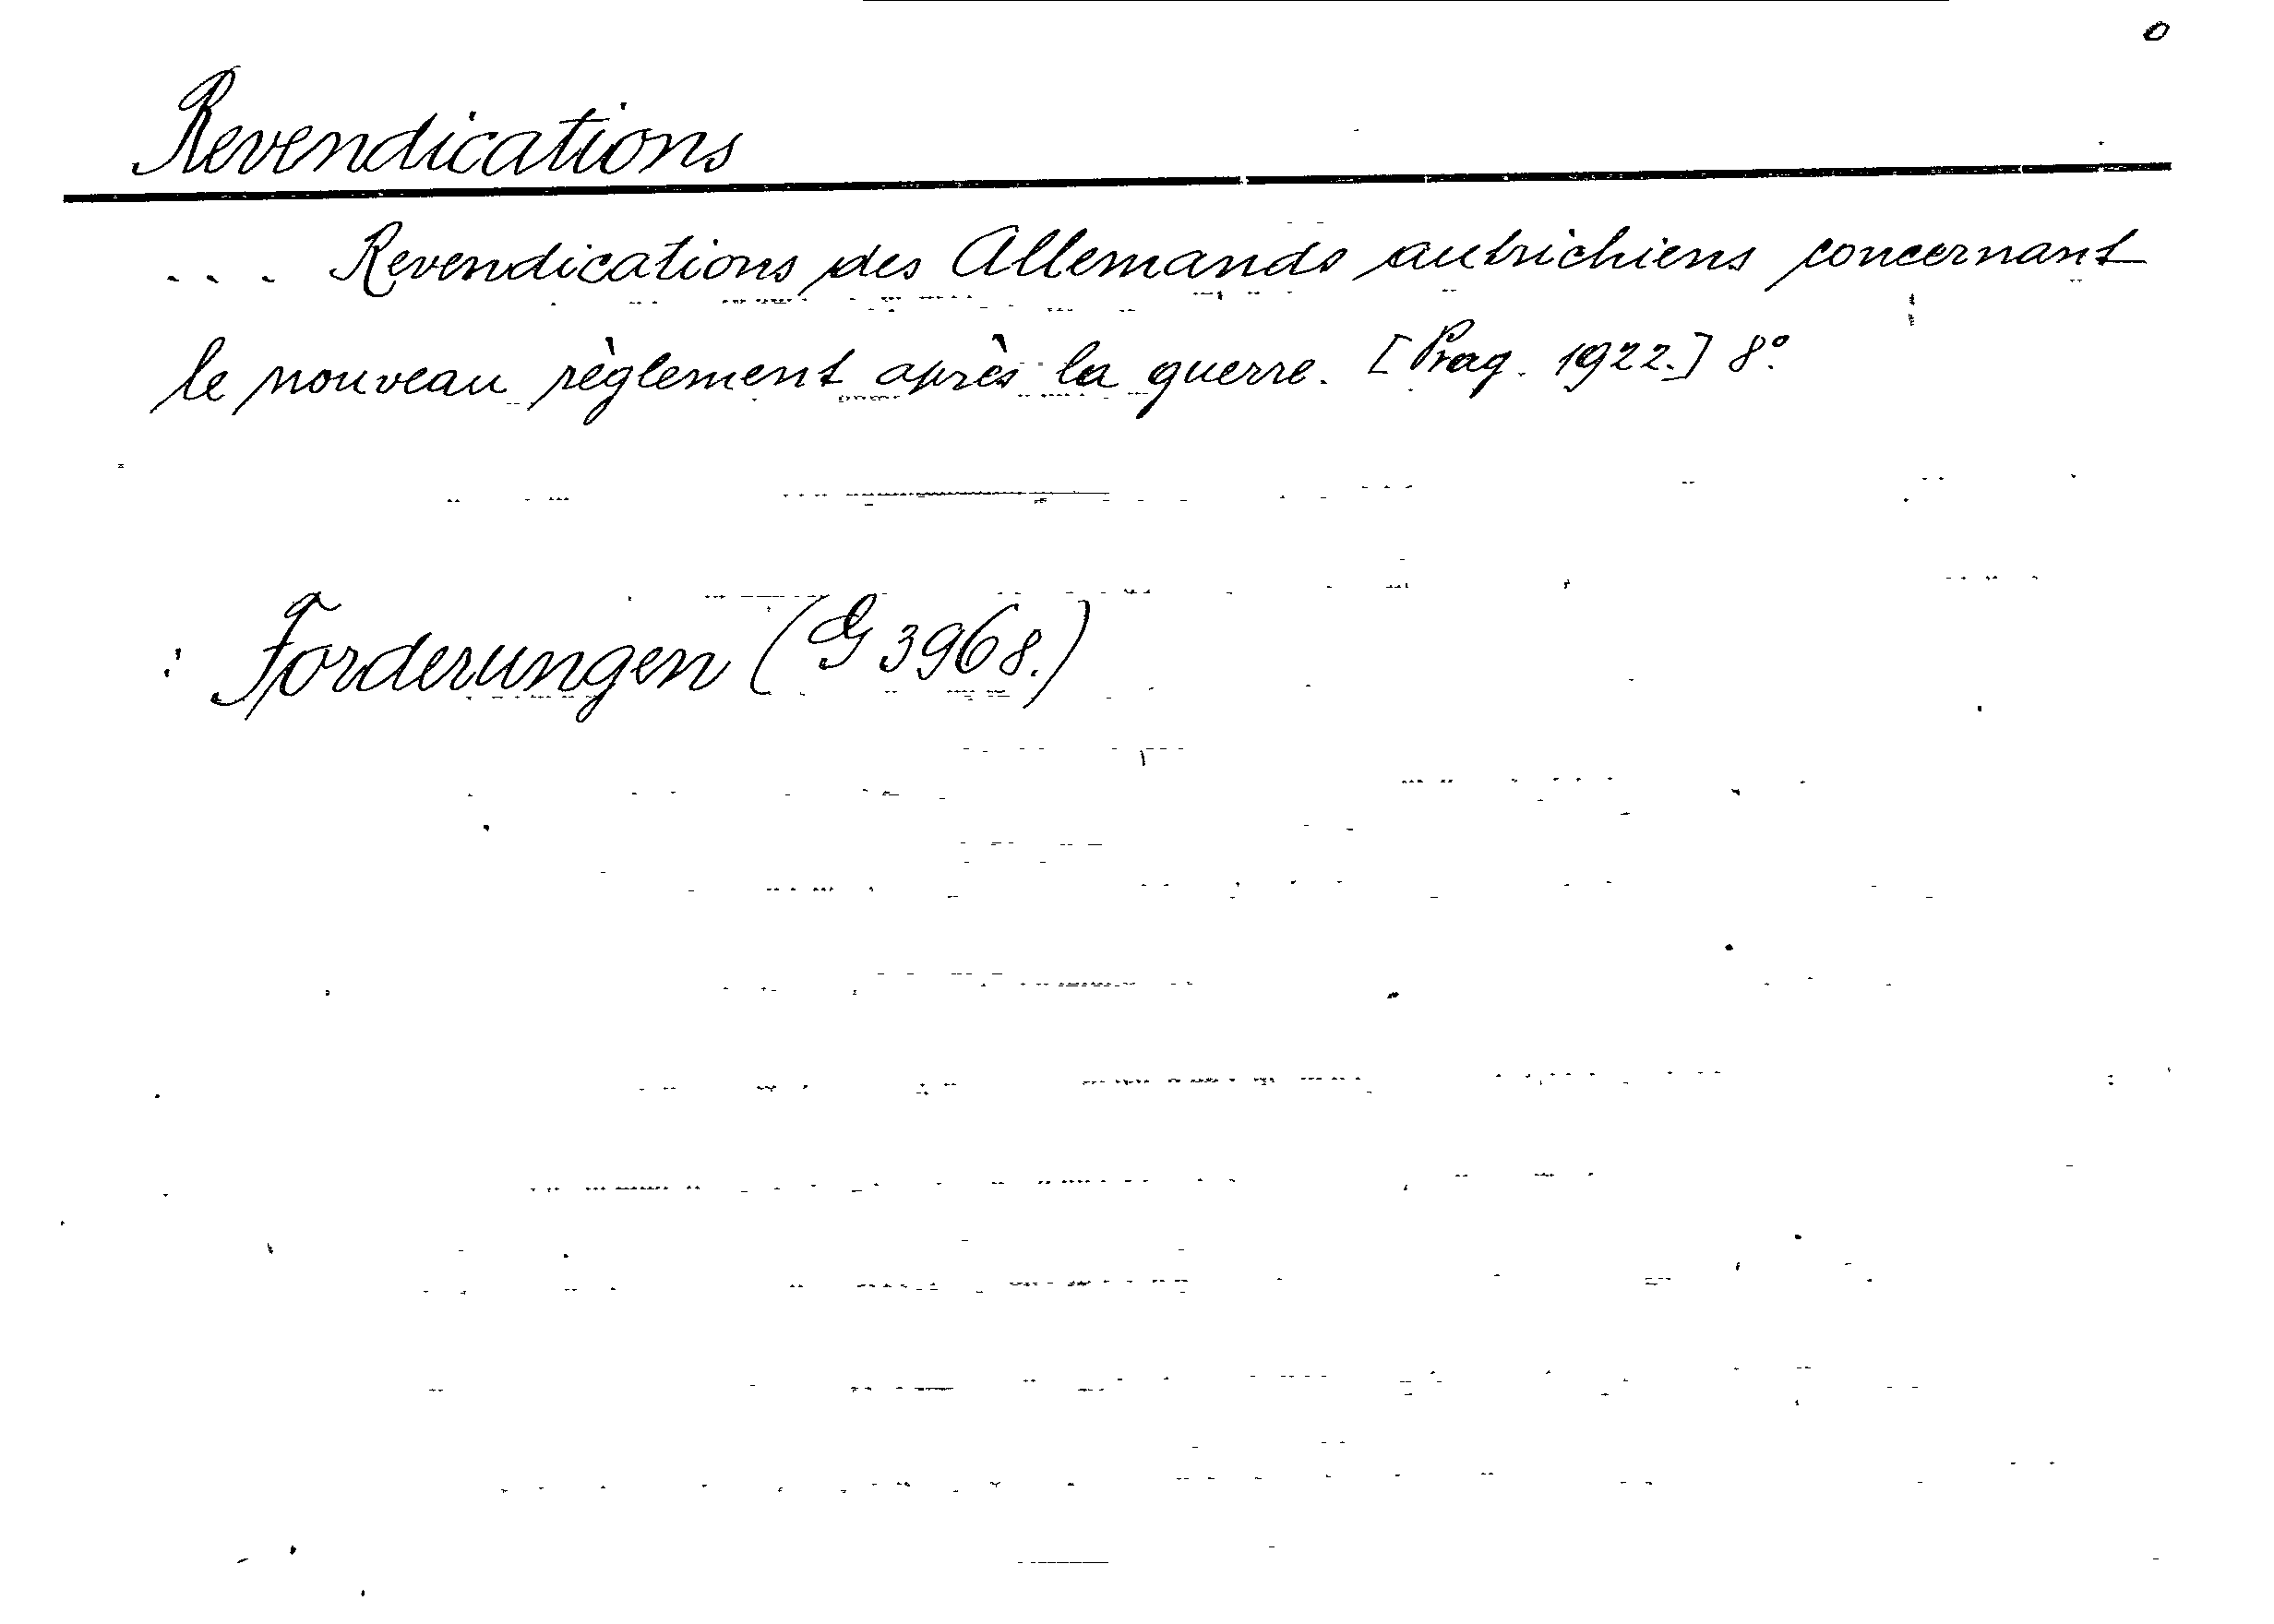 0
Revendications
... Revendications des Allemands autrichiens concernant
le nouveau règlement après la guerre. [Prag. 1922.] 8°.
: Forderungen (G 3968.)